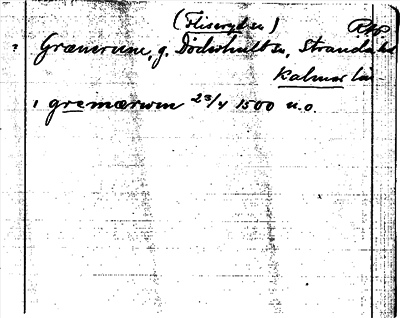 (Fliseryd sn) RAP
? Grænerume, g. Döderhults sn, Stranda hd
Kalmar län
i gremærwm 23/4 1500 u.o.